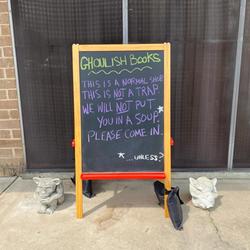 GHOULISH BOOKS
THIS IS A NORMAL SHOP.
THIS IS NOT A TRAP.
WE WILL NOT PUT
YOU IN A SOUP.
PLEASE COME IN.
...UNLESS?